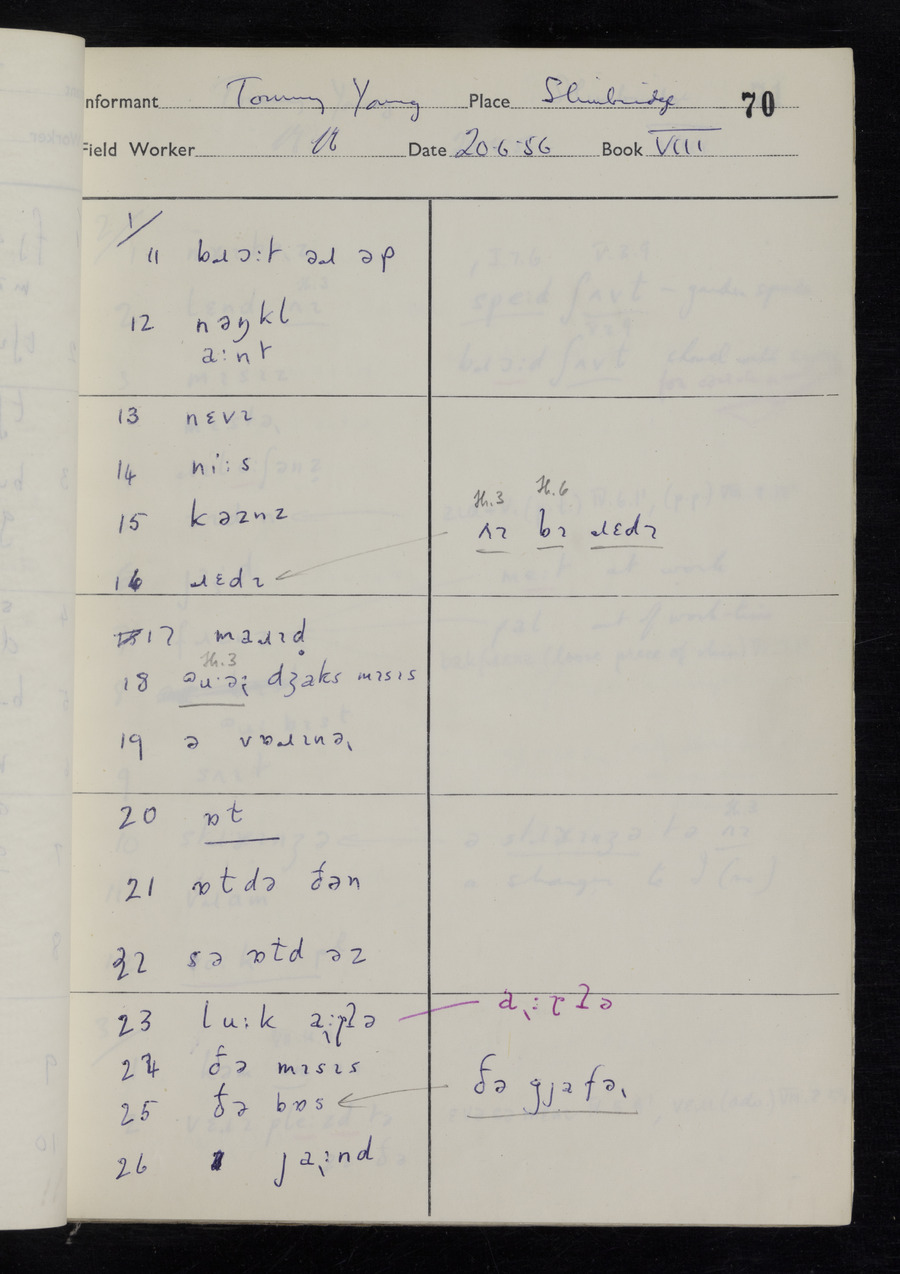 Informant Tommy Young Place Slimbridge 70
Field Worker Date 20·6·56 Book VIII
1/
11 bɹɔːt əɹ əp
12 nəŋkl
aːnt
13 nɛvɪ
14 niːs
15 kəznz
H.3 H.6
ʌɪ bɪ ɹɛdɪ
16 ɹɛdɪ
17 maɹɪd̥
H.3
18 dʒaks mɪsɪs
19 ə vɒɹɪnə˞
20 ɒt
21 ɒtdə ðən
22 sə ɒtd əz
23 luːk
24 ðə mɪsɪs
25 ðə bɒs
ðə gjafə˞
26 jaːnd